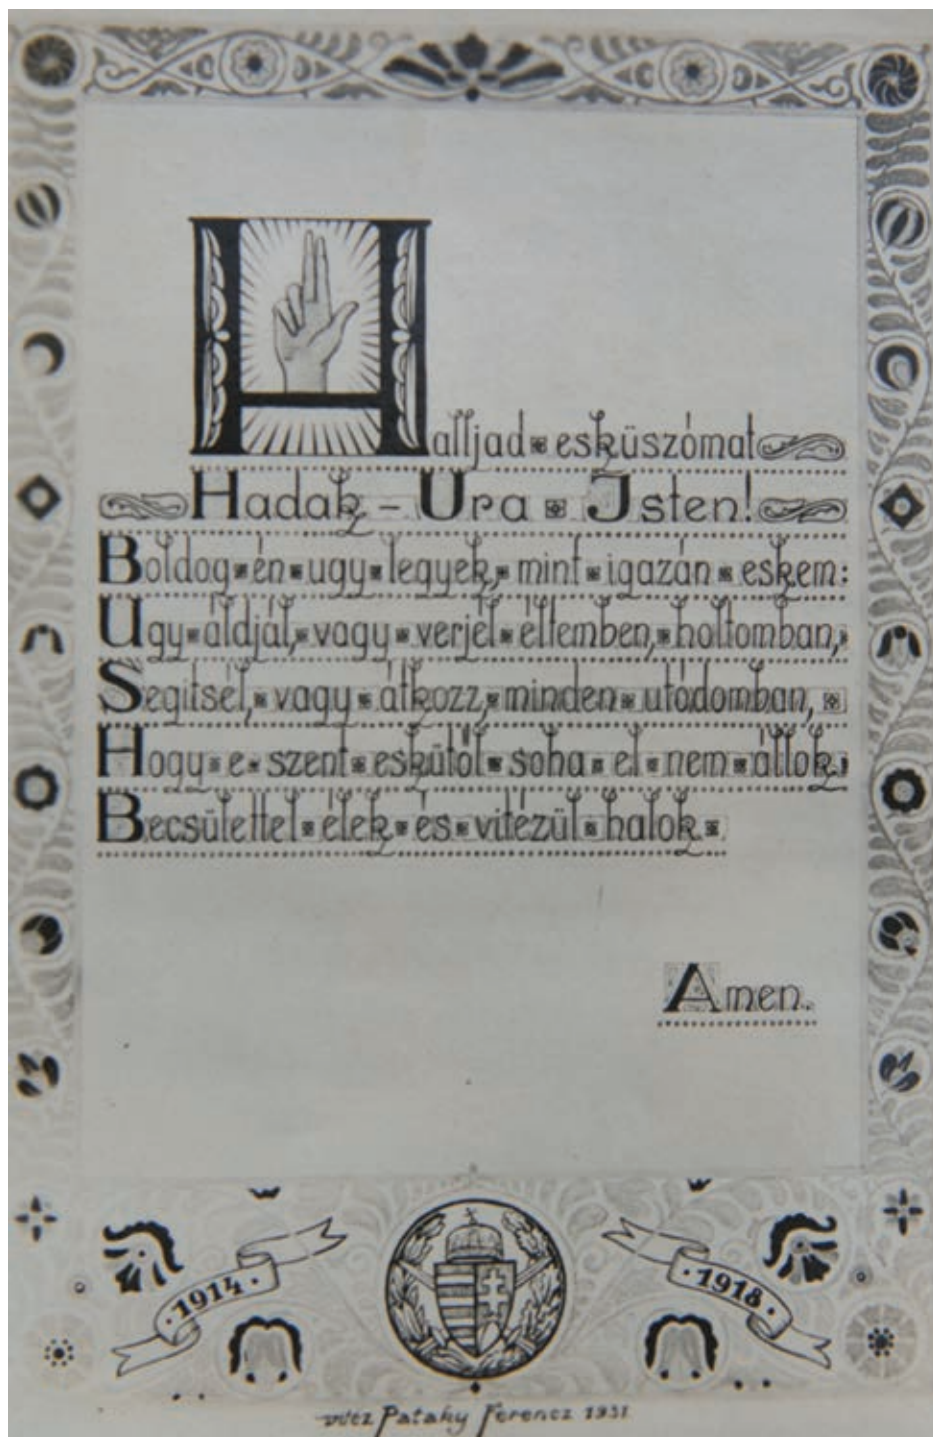 Halljad esküszómat
Hadak - Ura Isten!
Boldog én ugy legyek, mint igazán eskem:
Ugy áldjál, vagy verjél éltemben, holtomban,
Segitsél, vagy átkozz, minden utódomban,
Hogy e szent eskütől soha el nem állok:
Becsülettel élek és vitézül halok.
Amen.
1914
1918
vitéz Pataky Ferencz 1931